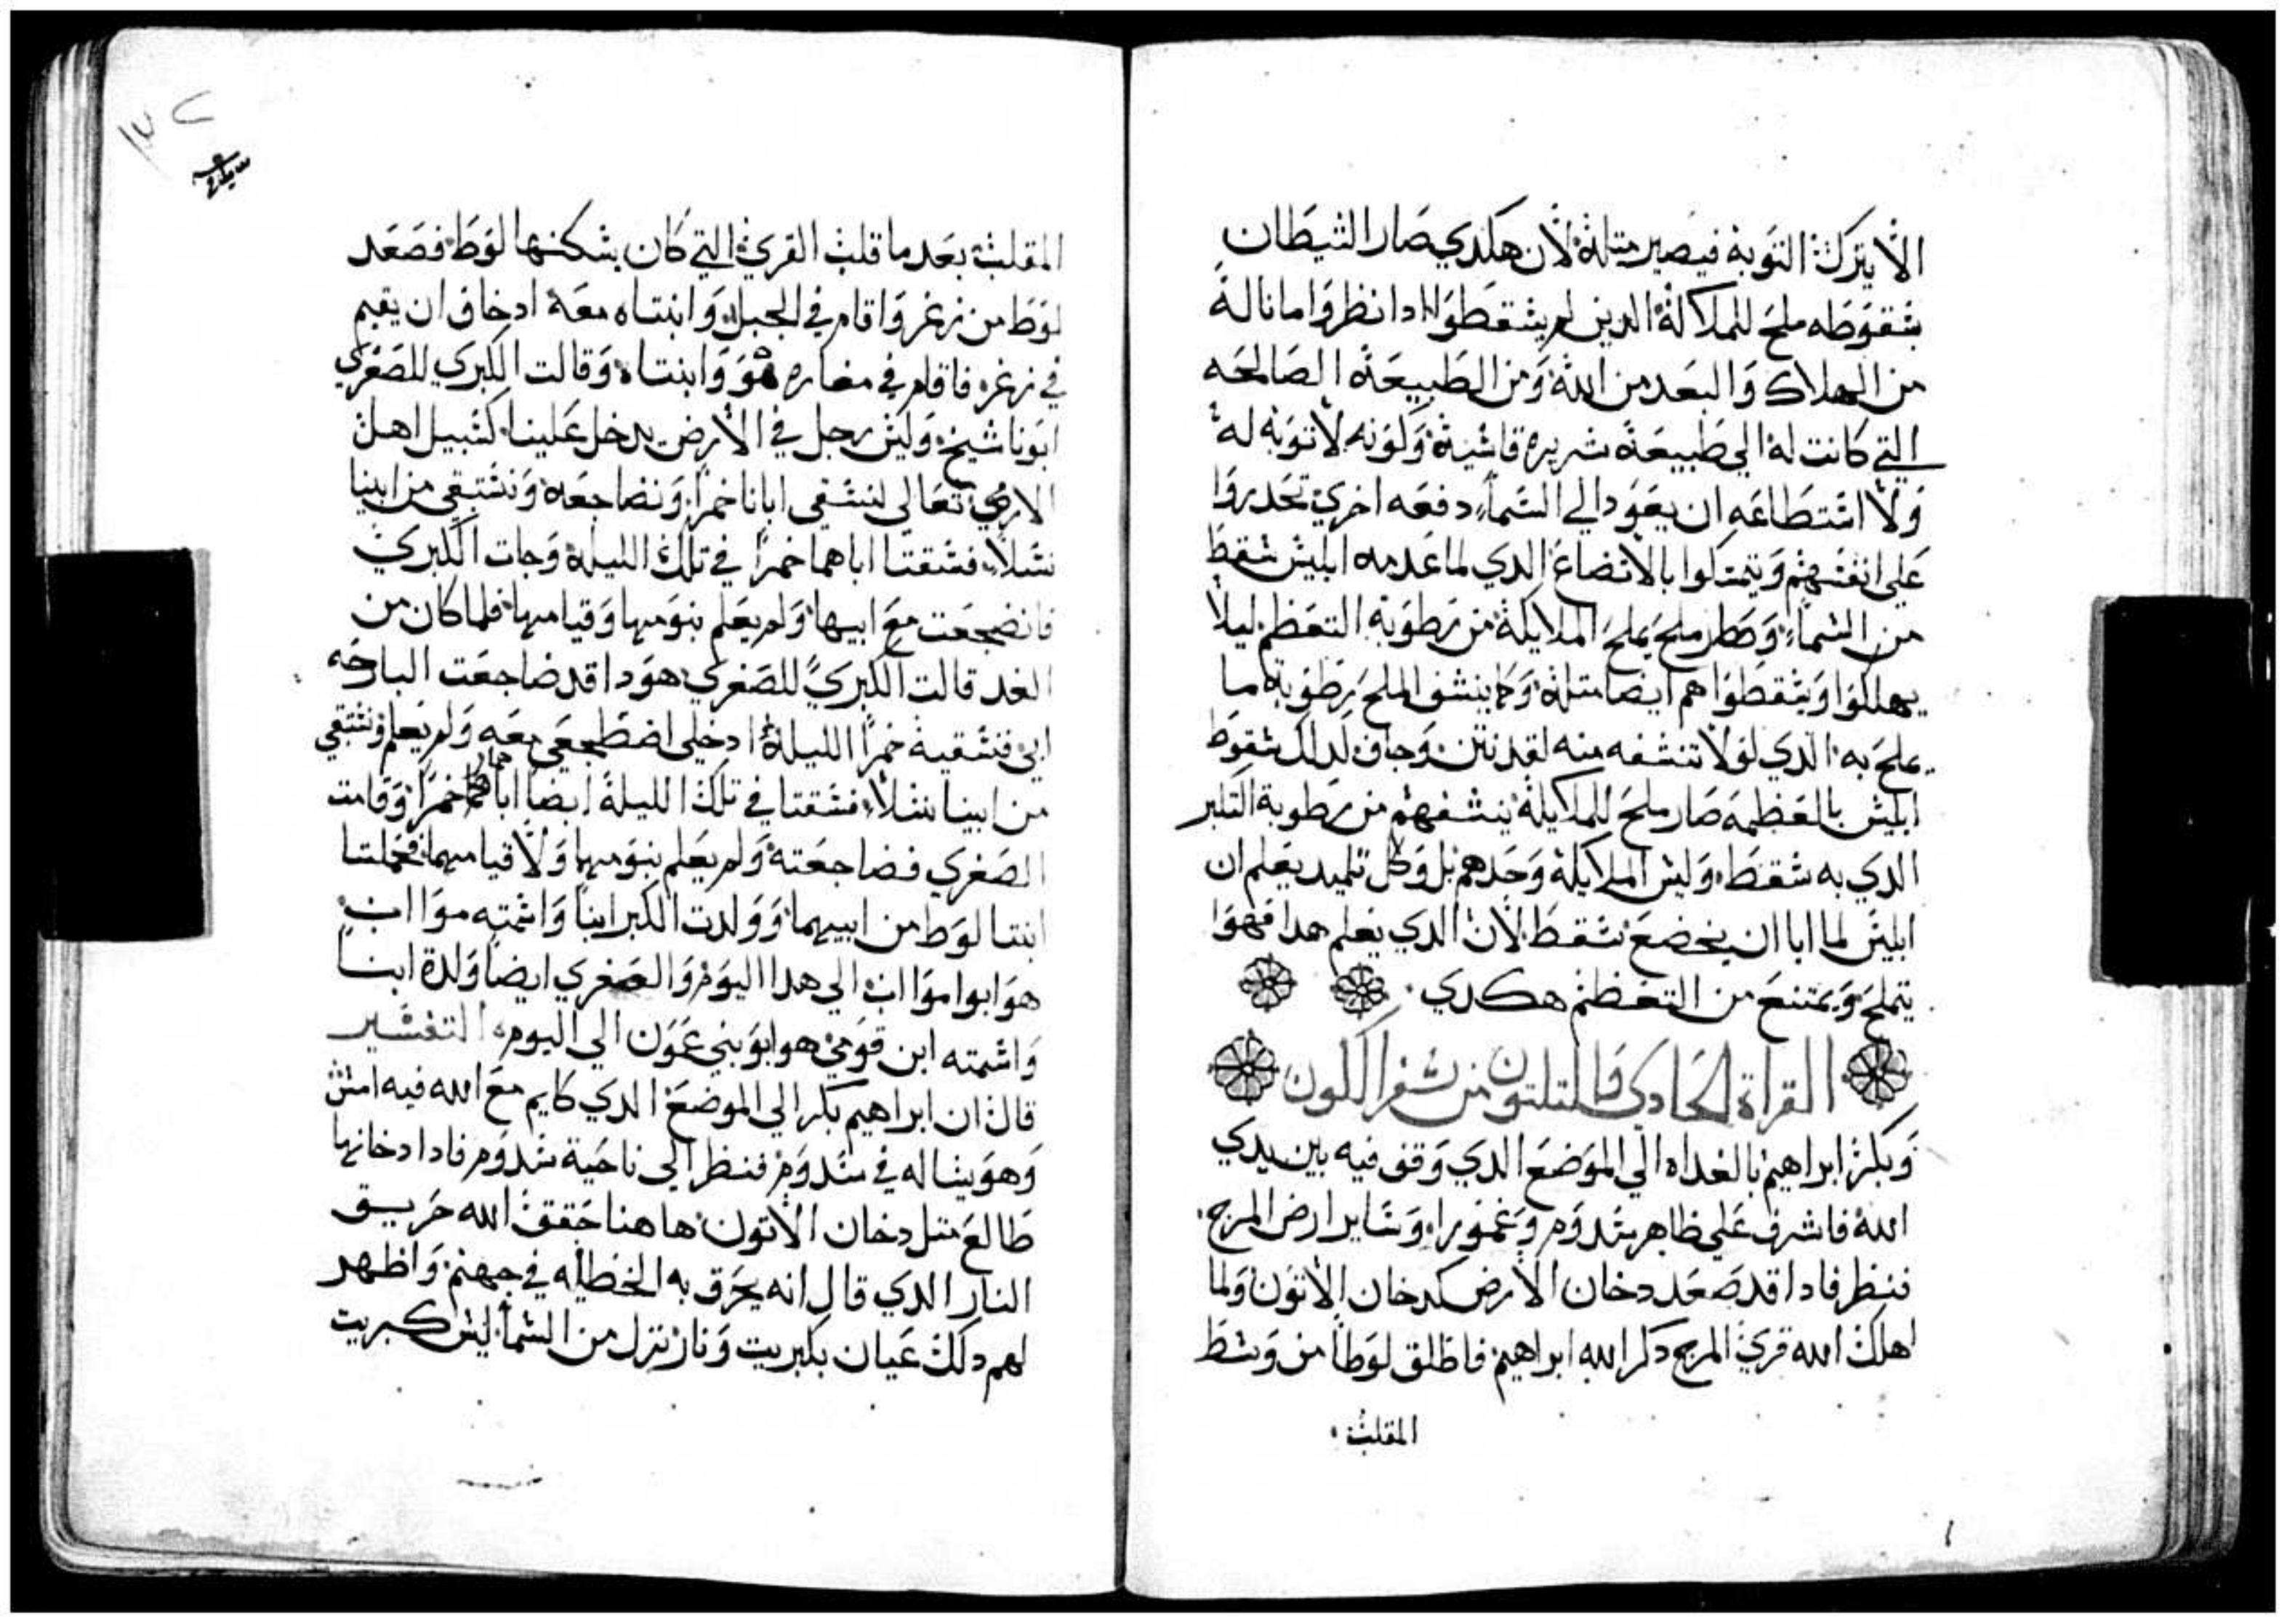 الا يترك التوبة فيصير متلة لان هكدي صار الشيطان
بشقوطه ملح للملاكة الدين لم يشقطوا ادا نظروا ما نالة
من الهلاك والبعد من الله ومن الطبيعة الصالحه
التي كانت له الي طبيعة شريره قاشية ولونه لا توبه له
ولا اشتطاعه ان يعود الي الشماء دفعه اخري تحدروا
علي انفشهم ويتمتلوا بالاتضاع الدي لما عدمه ابليش شقط
من الشماء وصار ملح يملح الملايكة من رطوبة التعظم ليلا
يهلكوا ويشقطوا هم ايضا متلة وكما ينشف الملح رطوبة ما
يملح به الدي لولا تنشفه منه لقد نتن وجاف لدلك شقوط
ابليش بالعظمة صار ملح للملايكة ينشفهم من رطوبة التكبر
الدي به شقط وليش الملايكة وحدهم بل وكل تلميد يعلم ان
ابليش لما ابا ان يخضع شقط لان الدي يعلم هدا فهوا
يتملح ويمتنع من التعظم هكدي
القراة الحادي والتلتون من شفر الكون
وبكر ابراهيم بالغداه الي الموضع الدي وقف فيه بين يدي
الله فاشرف علي ظاهر شدوم وغمورا وشاير ارض المرج
فنظر فادا قد صعد دخان الارض كدخان الاتون ولما
اهلك الله قري المرج دكر الله ابراهيم فاطلق لوطا من وشط
المقلبة
المقلبة بعد ما قلب القري التي كان يشكنها لوط فصعد
لوط من زغر واقام في الجبل وابنتاه معة اد خاف ان يقيم
في زغر فاقام في مغاره هو وابنتاه وقالت الكبري للصغري
ابونا شيخ وليش رجل في الارض يدخل علينا كشبيل اهل
الارض تعالي لنشقي ابانا خمرا ونضاجعه ونشتبقي من ابينا
نشلا فشقتا اباهما خمرا في تلك الليلة وجات الكبري
فانضجعت مع ابيها ولم يعلم بنومها وقيامها فلما كان من
الغد قالت الكبري للصغري هودا قد ضاجعت البارحه
ابي فنشقية خمرا الليلة ادخلي اضطجعي معه ولم يعلم ونشتبقي
من ابينا نشلا فشقتا في تلك الليلة ايضا اباهما خمرا وقامت
الصغري فضاجعته ولم يعلم بنومها ولا قيامها فحملتا
ابنتا لوط من ابيهما وولدت الكبرا ابنا واشمته مواب
هوابوا مواب الي هدا اليوم والصغري ايضا ولدة ابنا
واشمته ابن قومي هوابو بني عمون الي اليوم التفشير
قال ان ابراهيم بكر الي الموضع الدي كايم مع الله فيه امش
وهو يشاله في شدوم فنظر الي ناحية شدوم فادا دخانها
طالع متل دخان الاتون هاهنا حقق الله حريق
النار الدي قال انه يحرق به الخطاه في جهنم واظهر
لهم دلك عيان بكبريت ونار تنزل من الشما ليش كبريت